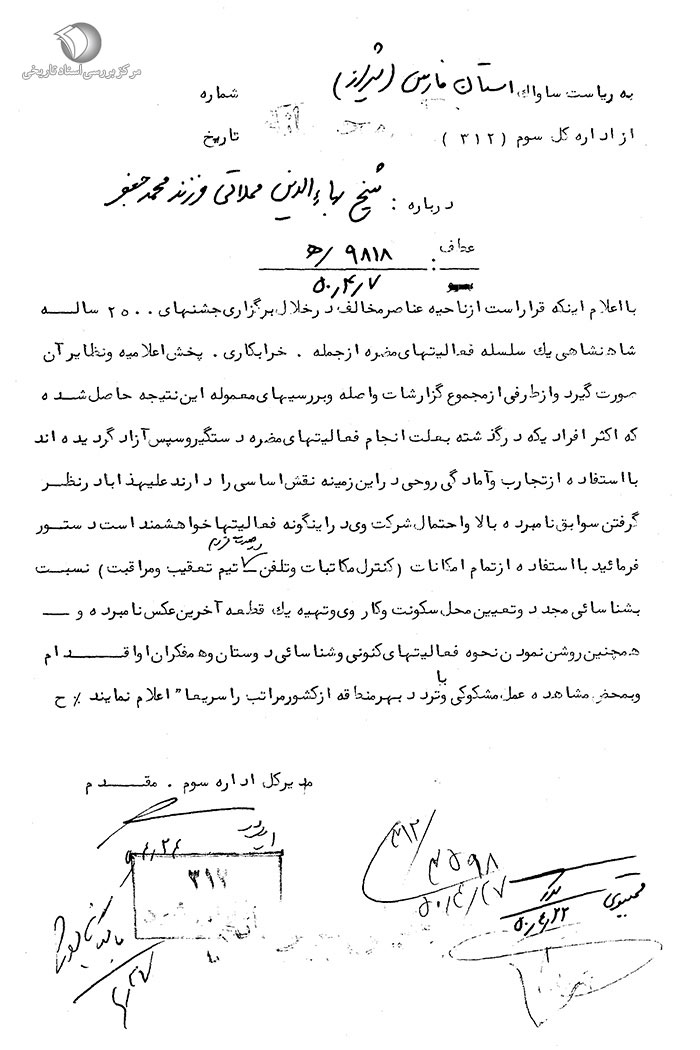 مرکز بررسی اسناد تاریخی
به ریاست ساواک استان فارس (شیراز)
شماره
از اداره کل سوم (۳۱۲)
تاریخ
درباره : شیخ بهاءالدین محلاتی فرزند محمدجعفر
عطف : ۹۸۱۸ /ھ
۵۰٫۴٫۷
با اعلام اینکه قرار است از ناحیه عناصر مخالف در خلال برگزاری جشنهای ۲۵۰۰ ساله
شاهنشاهی یک سلسله فعالیتهای مضره از جمله . خرابکاری . پخش اعلامیه و نظایر آن
صورت گیرد و از طرفی از مجموع گزارشات واصله و بررسیهای معموله این نتیجه حاصل شده
که اکثر افرادیکه در گذشته بعلت انجام فعالیتهای مضره دستگیر و سپس آزاد گردیده اند
با استفاده از تجارب و آمادگی روحی در این زمینه نقش اساسی را دارند علیهذا با در نظر
گرفتن سوابق نامبرده بالا و احتمال شرکت وی در اینگونه فعالیتها خواهشمند است دستور
فرمائید با استفاده از تمام امکانات (کنترل مکاتبات و تلفن تیم تعقیب و مراقبت) نسبت
بشناسائی مجدد و تعیین محل سکونت و کار وی و تهیه یک قطعه آخرین عکس نامبرده و
همچنین روشن نمودن نحوه فعالیتهای کنونی و شناسائی دوستان و همفکران او اقدام
و بمحض مشاهده عمل مشکوکی و یا تردد بهر منطقه از کشور مراتب را سریعا" اعلام نمایند ٪ ح
مدیر کل اداره سوم . مقدم
۳۱۲
۳۱۲/
۵۰/۴/۲۷
۵۰٫۴٫۲۲